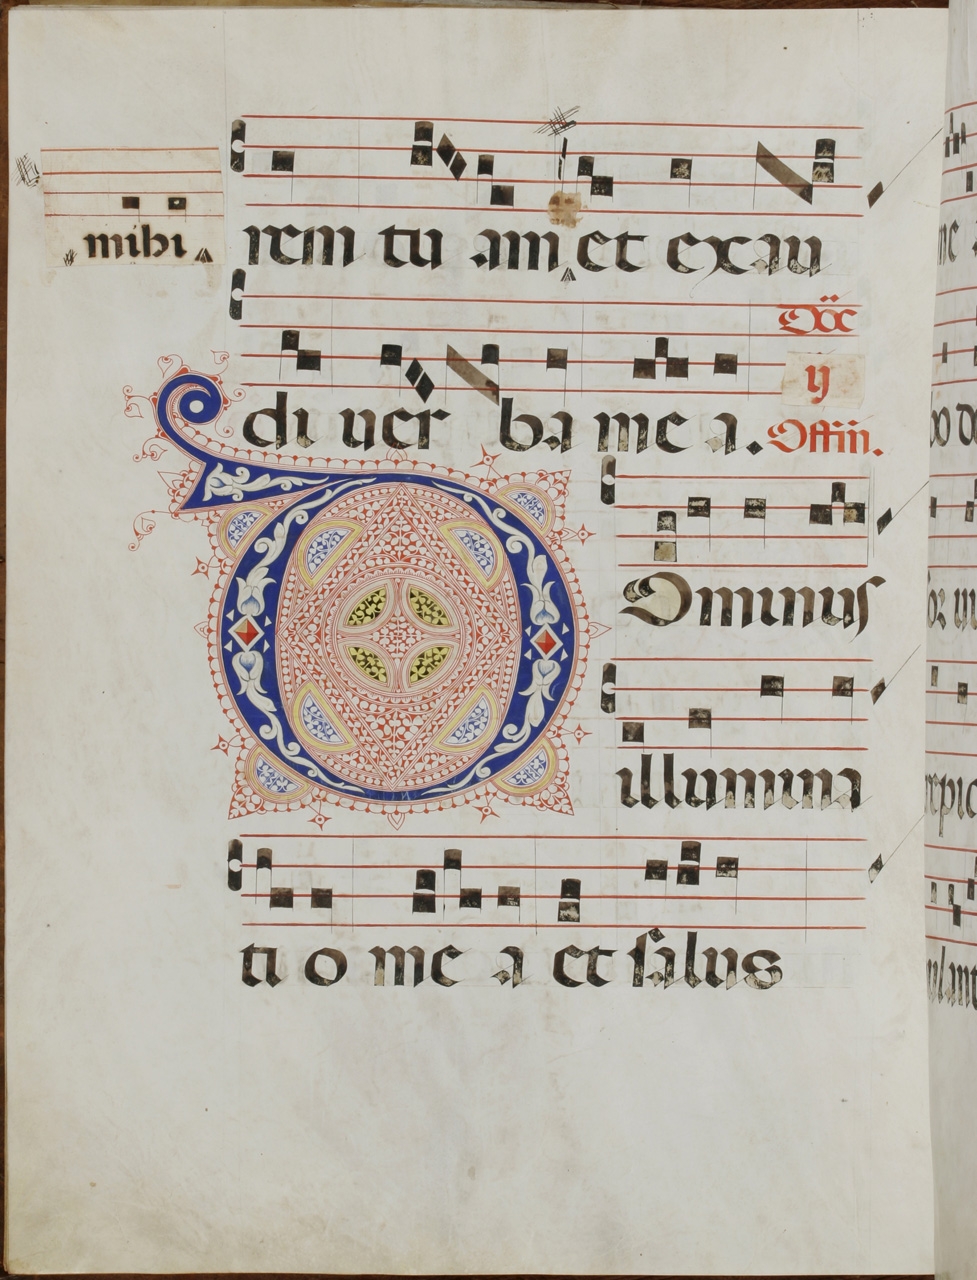 mihi
rem tu am, et exau
Dōc
di uer ba me a.
ij
Offm.
Dominus
illumina
ti o me a et salus